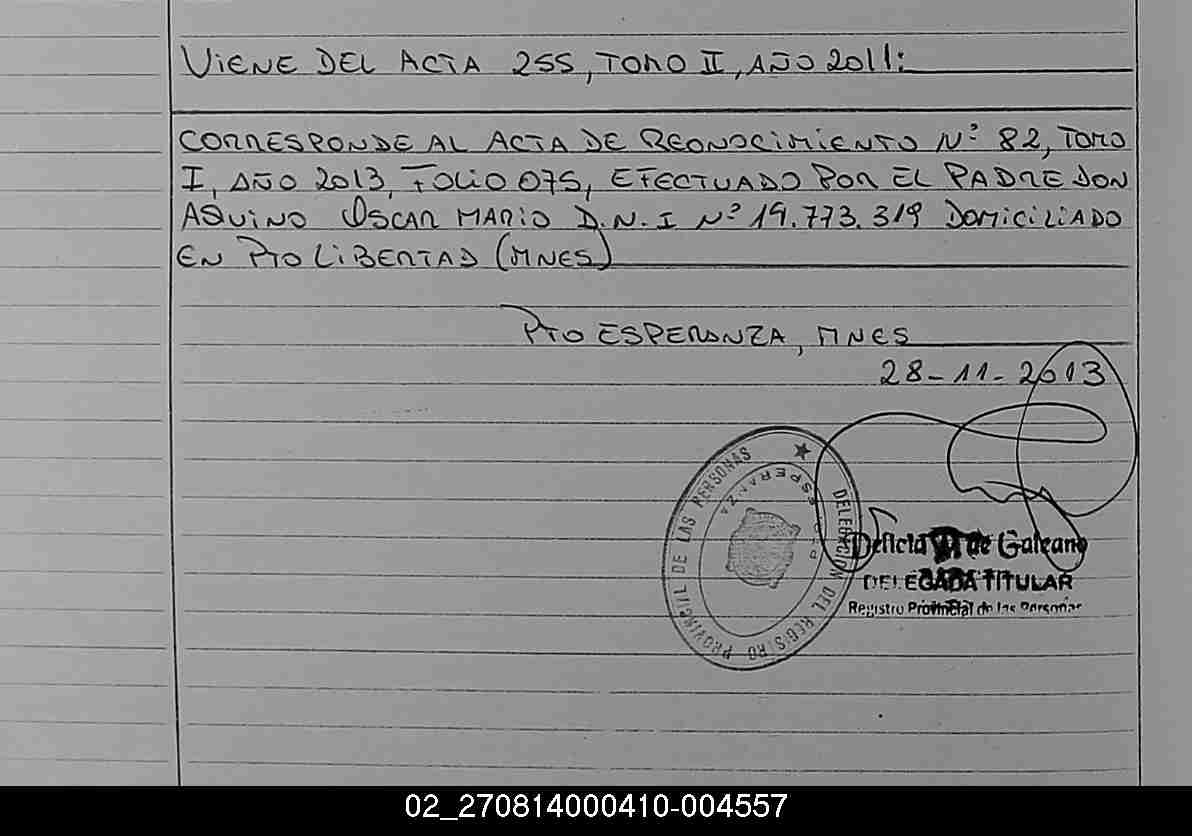 VIENE DEL ACTA 255, TOMO II, AÑO 2011:
CORRESPONDE AL ACTA DE REONOCIMIENTO Nº 82, TOMO
I, AÑO 2013, FOLIO 075, EFECTUADO POR EL PADRE DON
AQUINO OSCAR MARIO D.N.I Nº 19.773.319 DOMICILIADO
EN PTO LIBERTAD (MNES)
PTO ESPERANZA, MNES
28-11-2013
DELEGACION DEL REGISTRO PROVINCIAL DE LAS PERSONAS
PTO. ESPERANZA
de Galeano
DELEGADA TITULAR
Registro Provincial de las Personas
02_270814000410-004557